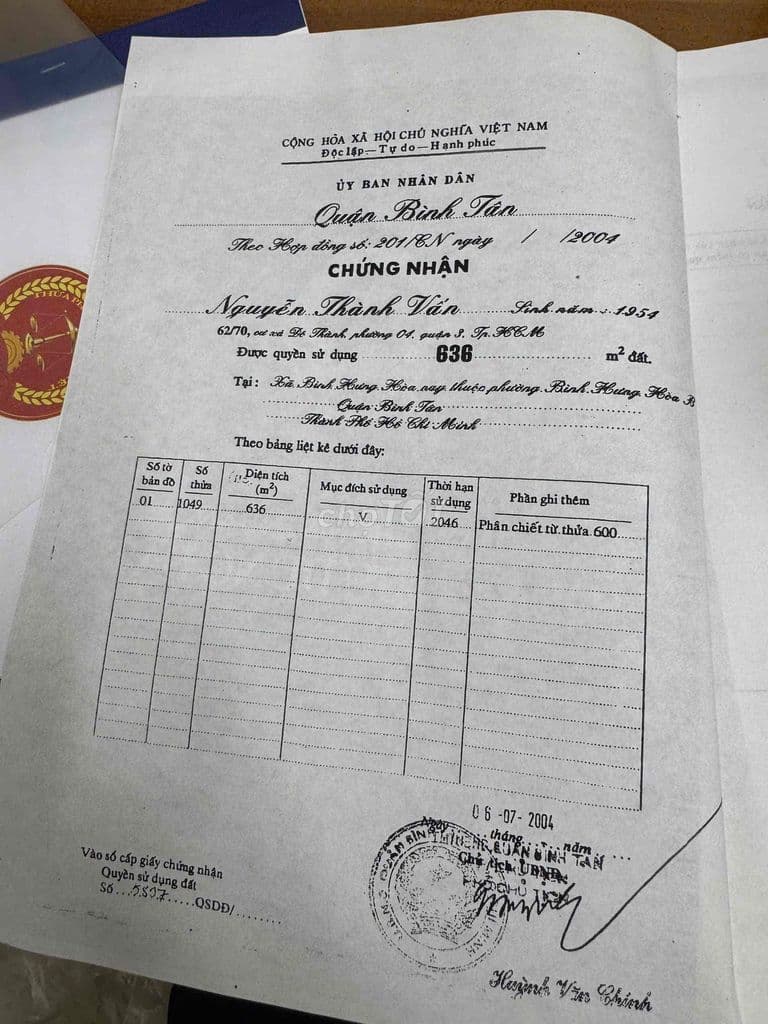 CỘNG HÒA XÃ HỘI CHỦ NGHĨA VIỆT NAM
Độc lập — Tự do — Hạnh phúc
ỦY BAN NHÂN DÂN
Quận Bình Tân
Theo Hợp đồng số: 201/CN ngày / /2004
CHỨNG NHẬN
Nguyễn Thành Vấn Sinh năm: 1954
62/70, cư xá Đô Thành, phường 04, quận 3, Tp.HCM
Được quyền sử dụng 636 m² đất.
Tại: Xã Bình Hưng Hòa nay thuộc phường Bình Hưng Hòa B
Quận Bình Tân
Thành Phố Hồ Chí Minh
Theo bảng liệt kê dưới đây:
Số tờ bản đồ Số thửa Diện tích (m²) Mục đích sử dụng Thời hạn sử dụng Phần ghi thêm
01 1049 636 V 2046 Phân chiết từ thửa 600
chợTỐT
06-07-2004
Ngày tháng năm
QUẬN BÌNH TÂN
Chủ tịch UBND
Vào sổ cấp giấy chứng nhận
Quyền sử dụng đất
Số 5897 QSDĐ/
Huỳnh Văn Chính
THỪA